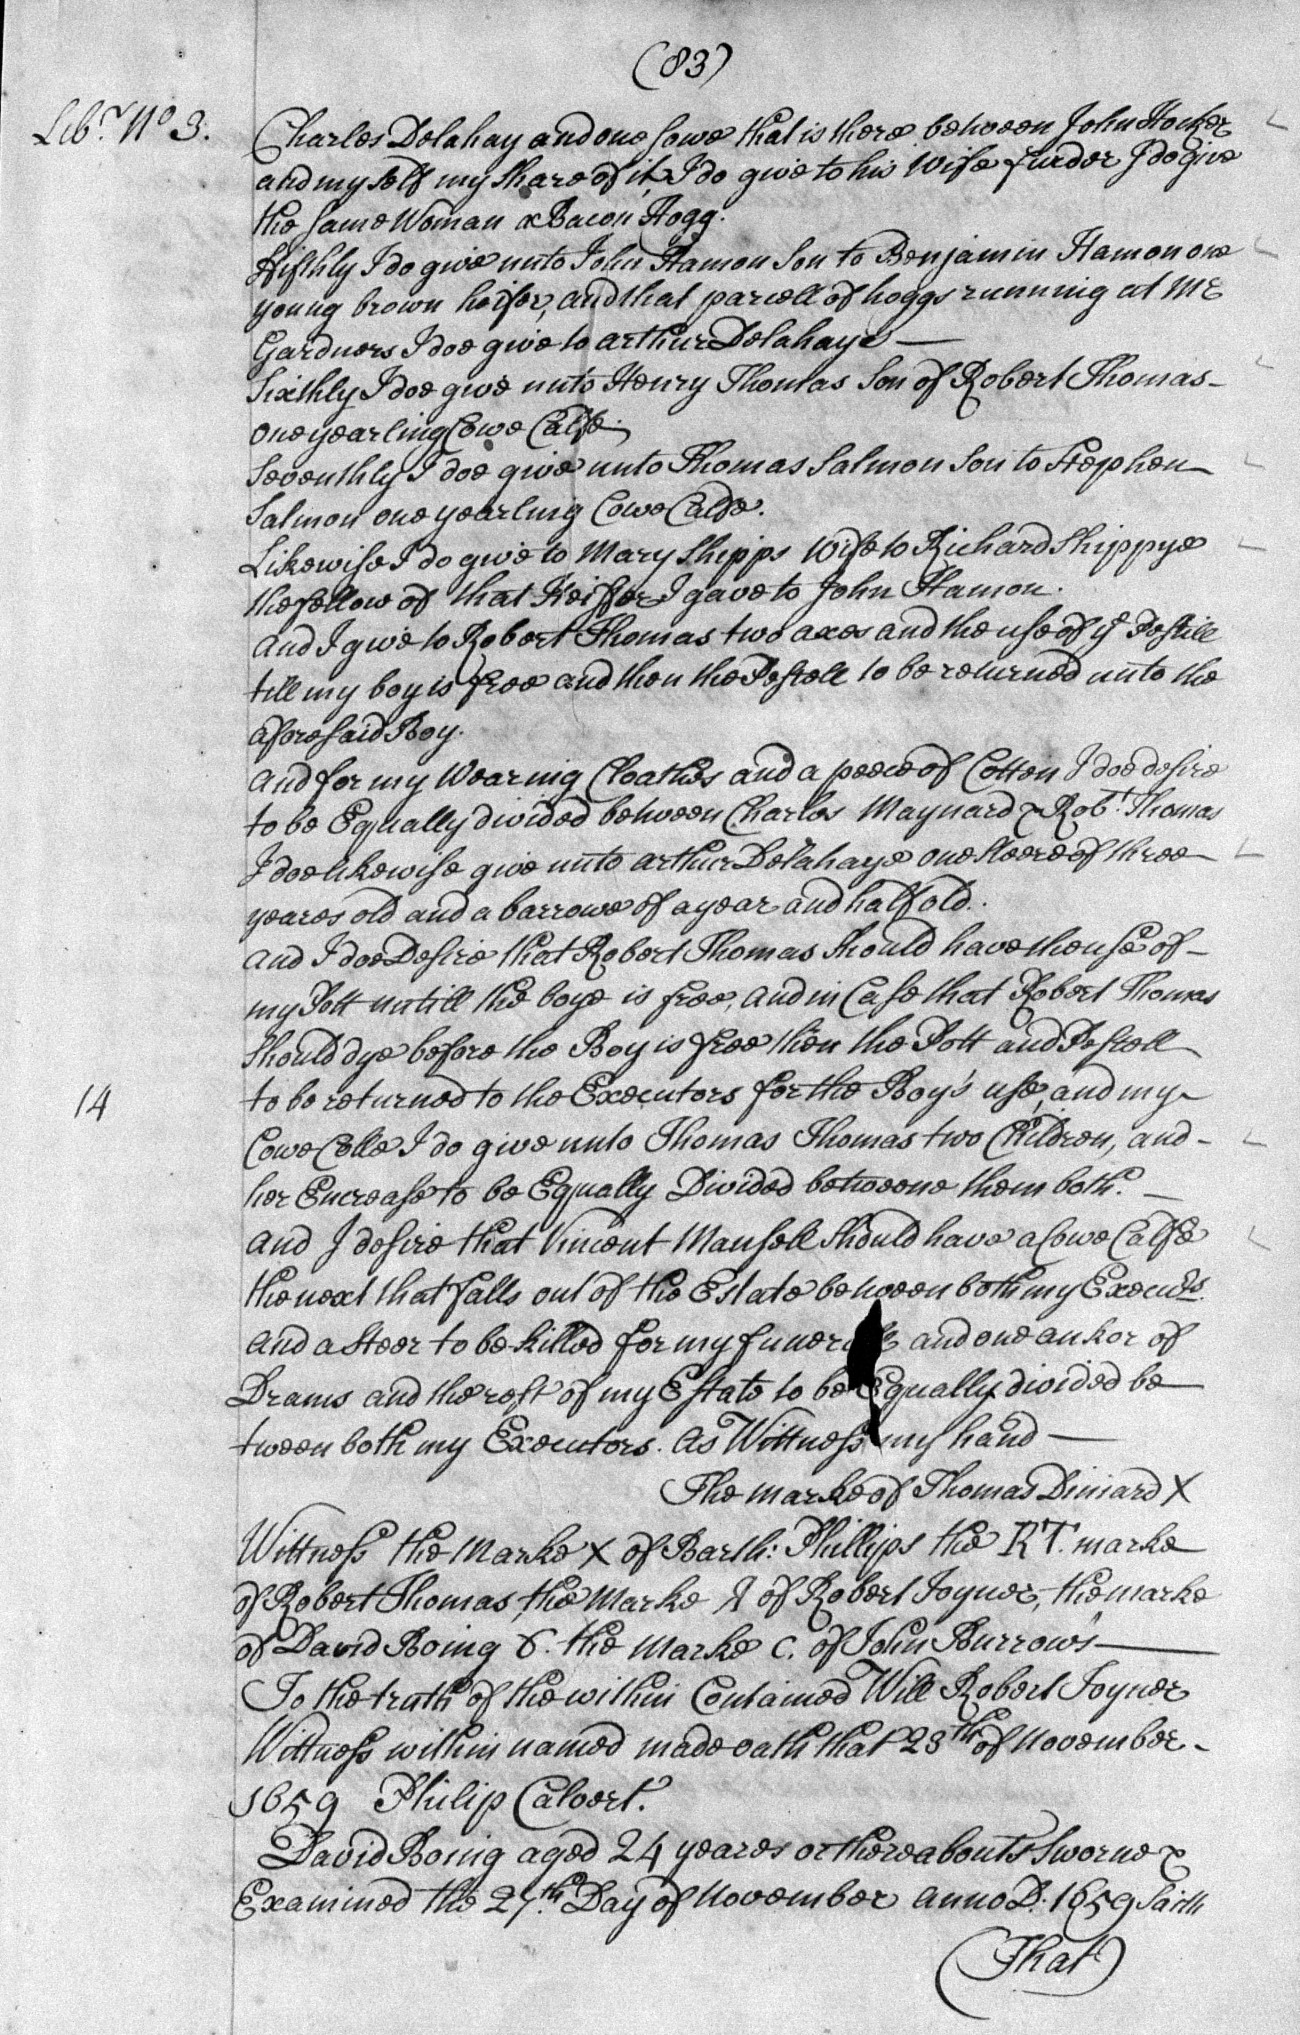 (83)
Libr. No 3.
Charles Delahay and one sowe that is there between John Hocker
and my self my share of it, I do give to his Wife furder I do give
the same Woman a Bacon Hogg.
Fifthly I do give unto John Hamon Son to Benjamin Hamon one
young brown heifer, and that parcell of hoggs running at Mr
Gardners I doe give to arthur Delahaye —
Sixthly I doe give unto Henry Thomas Son of Robert Thomas -
one yearling Cowe Calfe.
Seventhly I doe give unto Thomas Salmon Son to Stephen
Salmon one yearling Cowe Calfe.
Likewise I do give to Mary Shipps Wife to Richard Shippye
the fellow of that Heifer I gave to John Hamon.
and I give to Robert Thomas two axes and the use of ye Pestill
till my boy is free and then the Pestell to be returned unto the
aforesaid Boy.
and for my Wearing Cloathes and a peece of Cotton I doe desire
to be Equally divided between Charles Maynard & Robt. Thomas
I doe likewise give unto arthur Delahaye one steere of three
yeares old and a barrowe of a year and half old.
and I doe Desire that Robert Thomas should have the use of -
my Pott untill the boye is free, and in Case that Robert Thomas
should dye before the Boy is free then the Pott and Pestell
14
to be returned to the Executors for the Boy's use, and my
Cowe Colle I do give unto Thomas Thomas two Children, and -
her Encrease to be Equally Divided betweene them both. —
and I desire that Vincent Mansell should have a Cowe Calfe
the next that falls out of the Estate between both my Executrs.
and a Steer to be killed for my funerall and one ankor of
Drams and the rest of my Estate to be Equally divided be
tween both my Executors. as Wittness my hand —
The marke of Thomas Diniard X
Wittness the Marke X of Barth: Phillips the RT. marke
of Robert Thomas, the Marke A of Robert Joyner, the marke
of David Boing 8. the Marke C. of John Burrows —
To the truth of the within Contained Will Robert Joyner
Wittness within named made oath that 28th of November -
1659 Philip Calvert.
David Boing aged 24 yeares or thereabouts Sworne &
Examined the 27th. Day of November anno D. 1659 saith
(That)